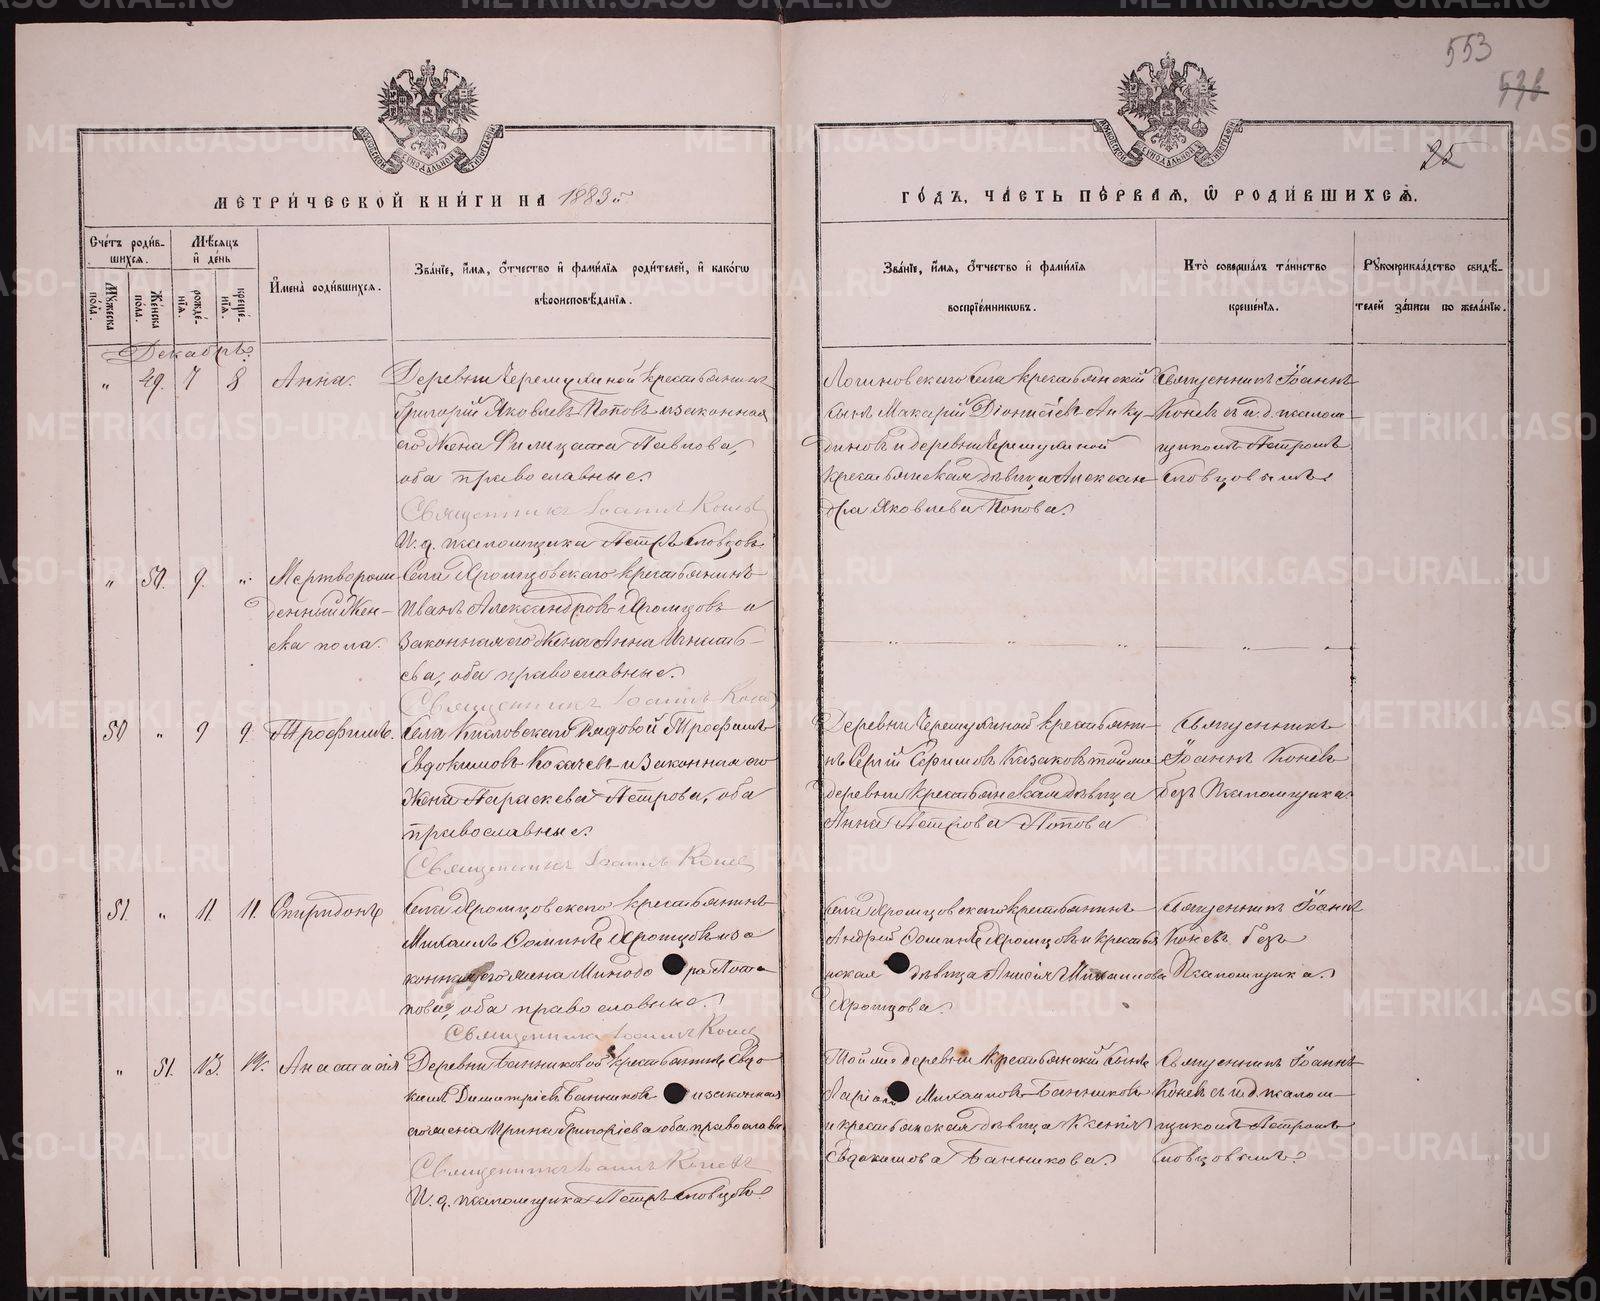 553
536
25
МЕТРИ́ЧЕСКОЙ КНИ́ГИ НА 1883й
ГО́ДЪ, ЧА́СТЬ ПЕ́РВАЯ, Ѡ РОДИ́ВШИХСЯ.
Сче́тъ роди́вшихся.
Мѣ́сяцъ и де́нь
Имена̀ родившихся.
Зва́нїе, и́мя, о́тчество и фами́лїя роди́телей, и како́гѡ
вѣроисповѣ́данїя.
Зва́нїе, и́мя, о́тчество и фами́лїя
воспрїе́мникѡвъ.
Кто̀ соверша́лъ та́инство
креще́нїя.
Рꙋкоприкла́дство свидѣ́телей за́писи по жела́нїю.
Мꙋ́жеска пола.
Же́нска пола.
рожде́нїя.
креще́нїя.
Декабрь.
" 49. 7 8 Анна.
Деревни Черемушной крестьянинъ
Григорій Яковлевъ Поповъ и законная
его жена Филицата Павлова,
оба православные.
Священникъ Іоаннъ Коневъ
И. д. псаломщика Петръ Словцовъ
Логиновскаго села крестьянскій
сынъ Макарій Діонисіевъ Анку-
диновъ и деревни Черемушной
крестьянская дѣвица Александ-
ра Яковлева Попова.
Священникъ Іоаннъ
Коневъ съ и. д. псалом-
щикомъ Петромъ
Словцовымъ.
" 50. 9. " Мертворож-
денный жен-
ска пола.
Села Хромцовскаго крестьянинъ
Иванъ Александровъ Хромцовъ и
законная его жена Анна Игнать-
ева, оба православные.
Священникъ Іоаннъ Коневъ
50 " 9 9. Трофимъ.
Села Кисловскаго рядовой Трофимъ
Евдокимовъ Козачевъ и законная его
жена Параскева Петрова, оба
православные.
Священникъ Іоаннъ Коневъ
Деревни Черемушной крестьяни-
нъ Сергій Ефимовъ Казаковъ и той же
деревни крестьянская дѣвица
Анна Петрова Попова
Священникъ
Іоаннъ Коневъ
безъ псаломщика.
51. " 11. 11. Спиридонъ
Села Хромцовскаго крестьянинъ
Михаилъ Ѳоминъ Хромцовъ и за-
конная его жена Минодора Пота-
пова, оба православные.
Священникъ Іоаннъ Коневъ
Села Хромцовскаго крестьянинъ
Андрей Ѳоминъ Хромцовъ и крестья-
нская дѣвица Анисія Михаилова
Хромцова.
Священникъ Іоаннъ
Коневъ безъ
псаломщика.
" 51. 13. 14. Анастасія
Деревни Банниковой крестьянинъ Евдо-
кимъ Димитріевъ Банниковъ и законная
его жена Ирина Григоріева оба православн.
Священникъ Іоаннъ Коневъ
И. д. псаломщика Петръ Словцовъ
Той же деревни крестьянскій сынъ
Ларіонъ Михаиловъ Банниковъ
и крестьянская дѣвица Ксенія
Евдокимова Банникова.
Священникъ Іоаннъ
Коневъ съ и. д. псалом-
щикомъ Петромъ
Словцовымъ.
METRIKI.GASO-URAL.RU